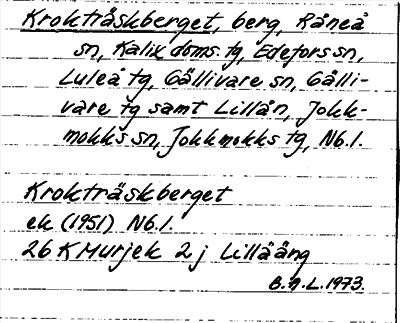 Krokträskberget, berg, Råneå
sn, Kalix doms. tg, Edefors sn,
Luleå tg, Gällivare sn, Gälli-
vare tg samt Lillån, Jokk-
mokks sn, Jokkmokks tg, Nb.l.
Krokträskberget
ek (1951) Nb.l.
26 K Murjek 2 j Lillåäng
B.N.L. 1973.